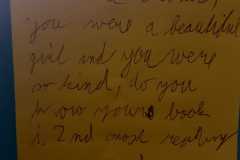 you were a beautiful
girl and you were
so kind, do you
know your book
is 2nd most reading